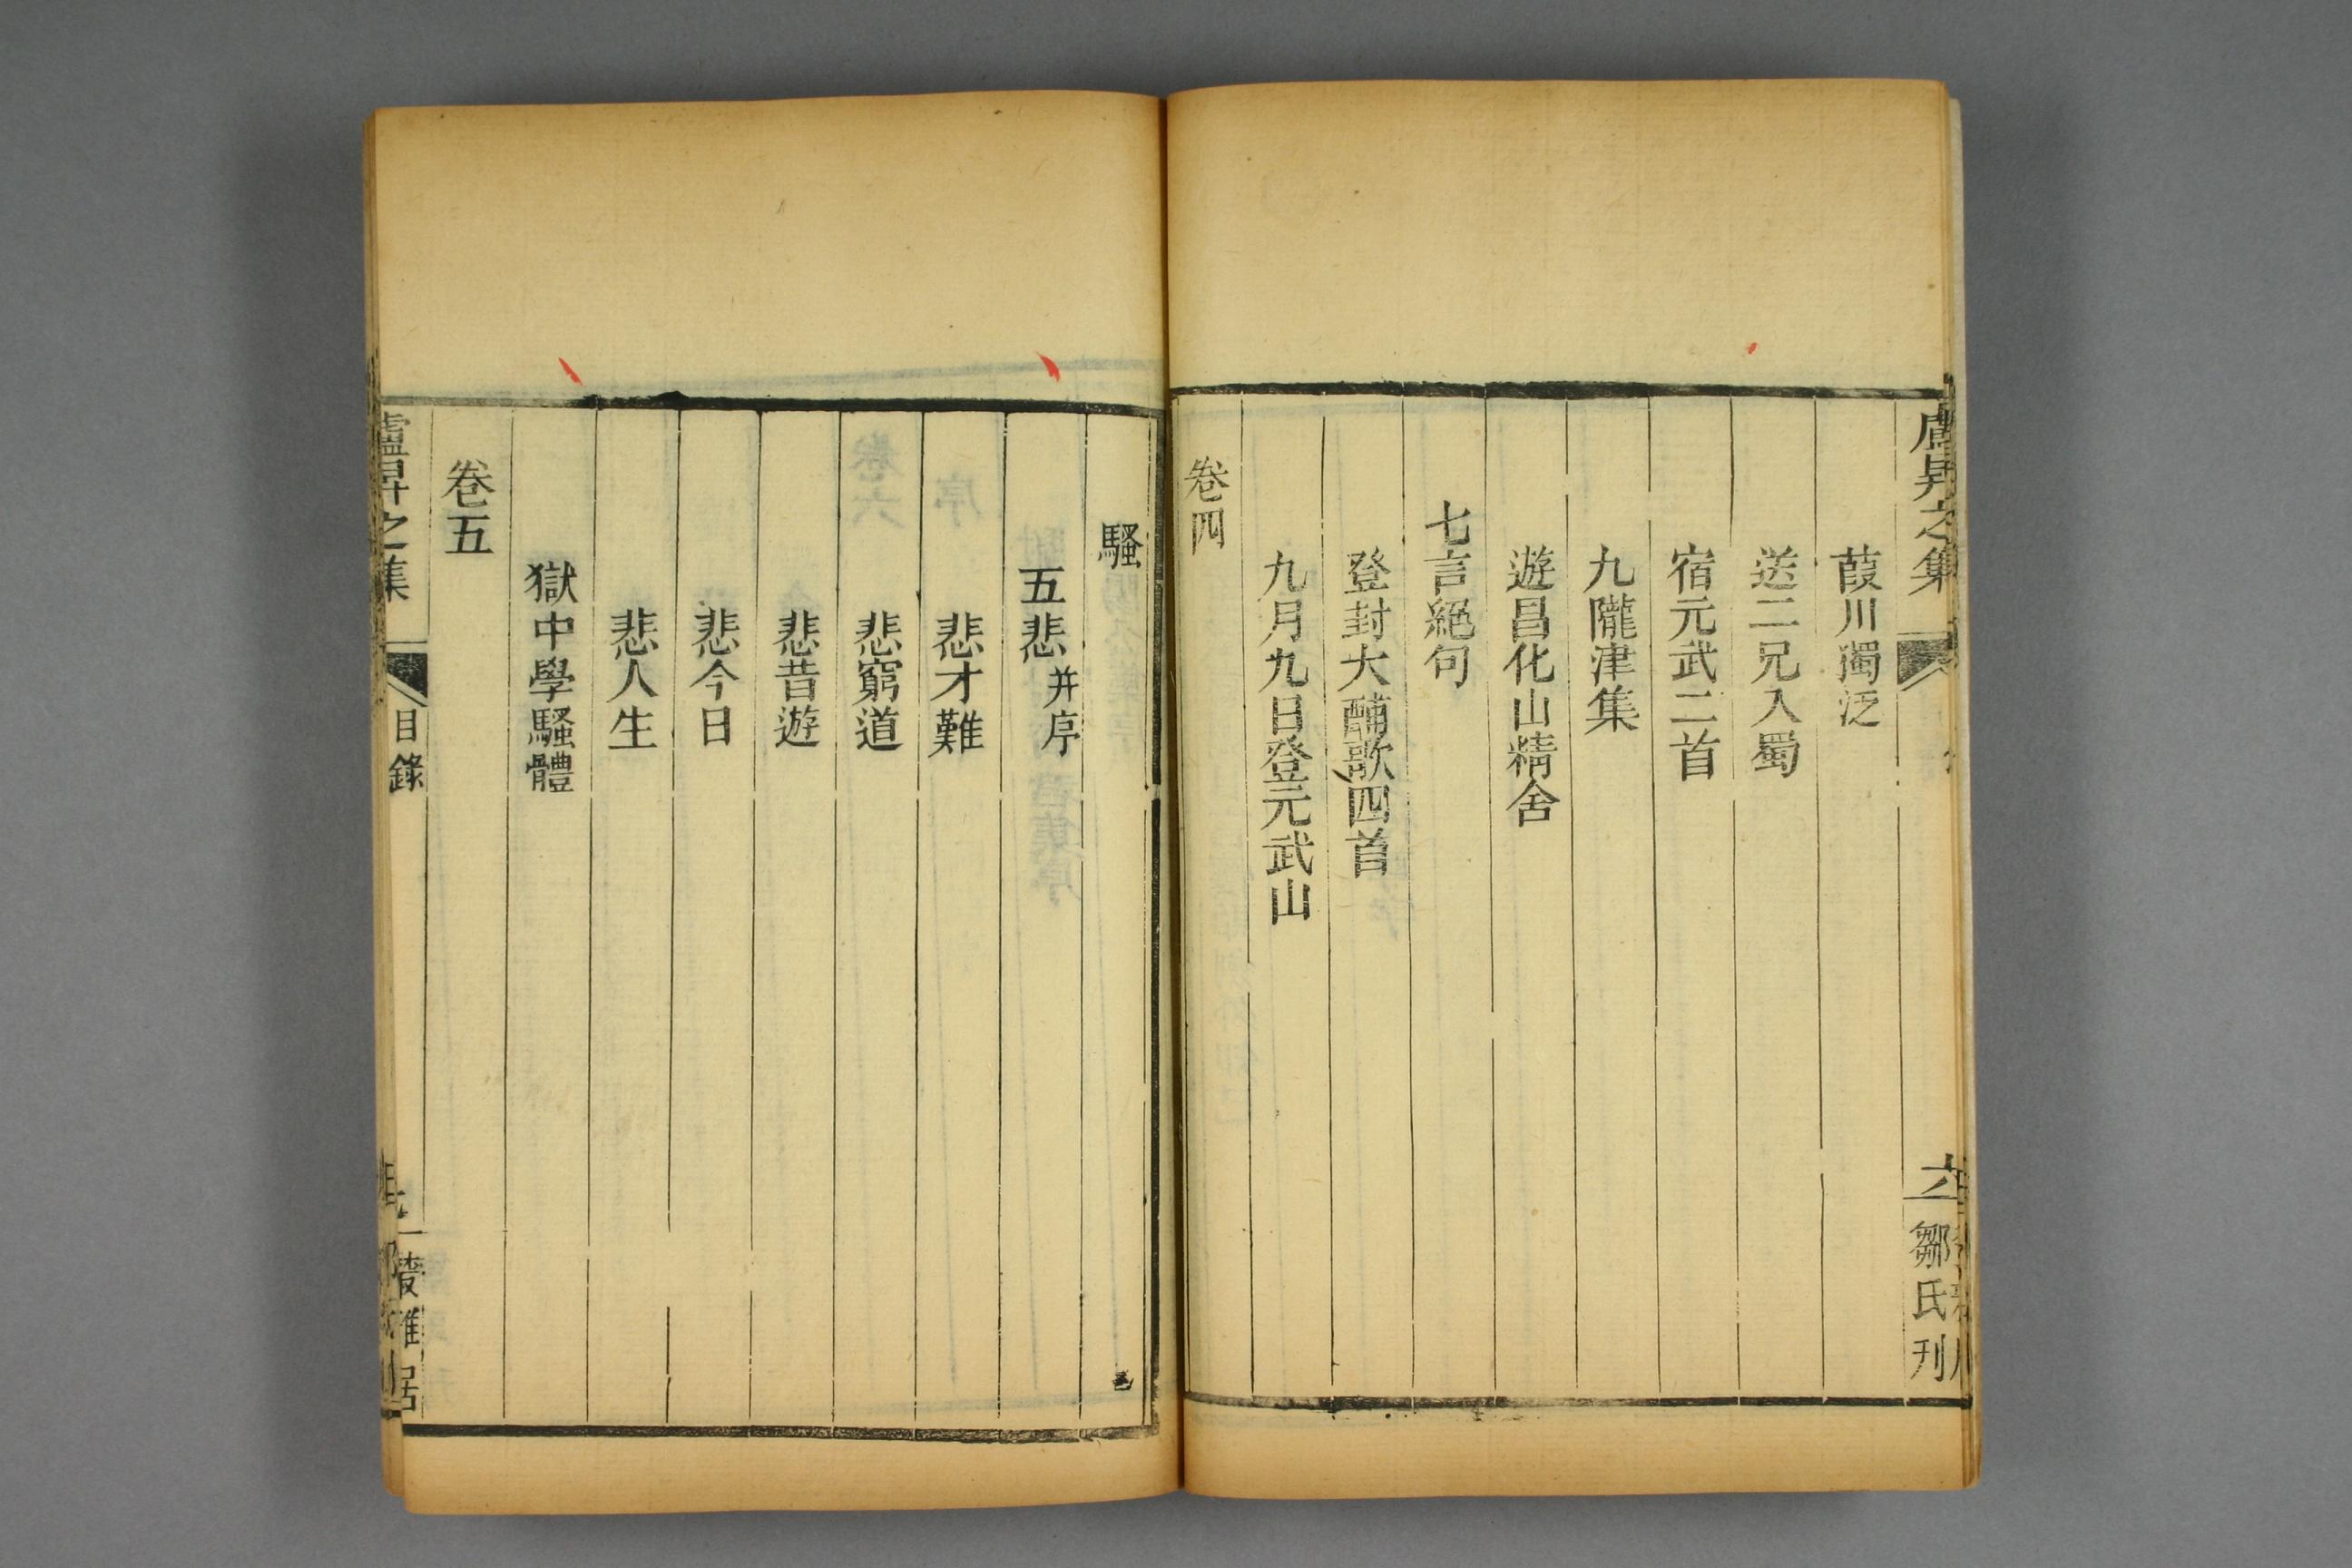 盧昇之集
六
鄒氏刊
葭川獨泛
送二兄入蜀
宿元武二首
九隴津集
遊昌化山精舍
七言絕句
登封大酺歌四首
九月九日登元武山
卷四
騷
五悲并序
悲才難
悲窮道
悲昔遊
悲今日
悲人生
獄中學騷體
卷五
盧昇之集
目錄